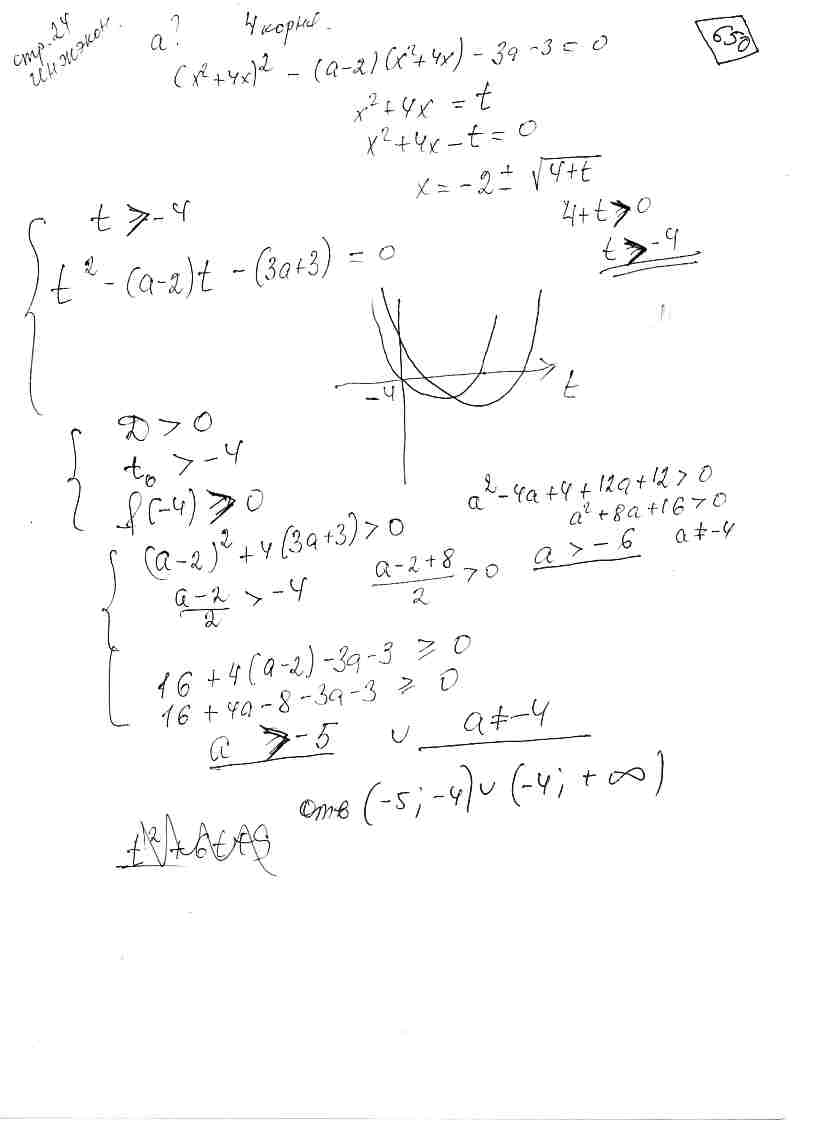 стр.24
инжэкон.
a? 4 корня.
650
(x²+4x)² - (a-2)(x²+4x) - 3a - 3 = 0
x²+4x = t
x²+4x-t = 0
x = -2 ± √4+t
t ⩾ -4
4+t ⩾ 0
t² - (a-2)t - (3a+3) = 0
t ⩾ -4
-4
t
D > 0
t₀ > -4
f(-4) ⩾ 0
a²-4a+4+12a+12>0
a²+8a+16>0
(a-2)²+4(3a+3)>0
a-2/2 > -4 a-2+8/2 >0 a > -6 a≠-4
16+4(a-2)-3a-3 ⩾ 0
16+4a-8-3a-3 ⩾ 0
a ⩾ -5 ∪ a≠-4
отв (-5; -4)∪(-4; +∞)